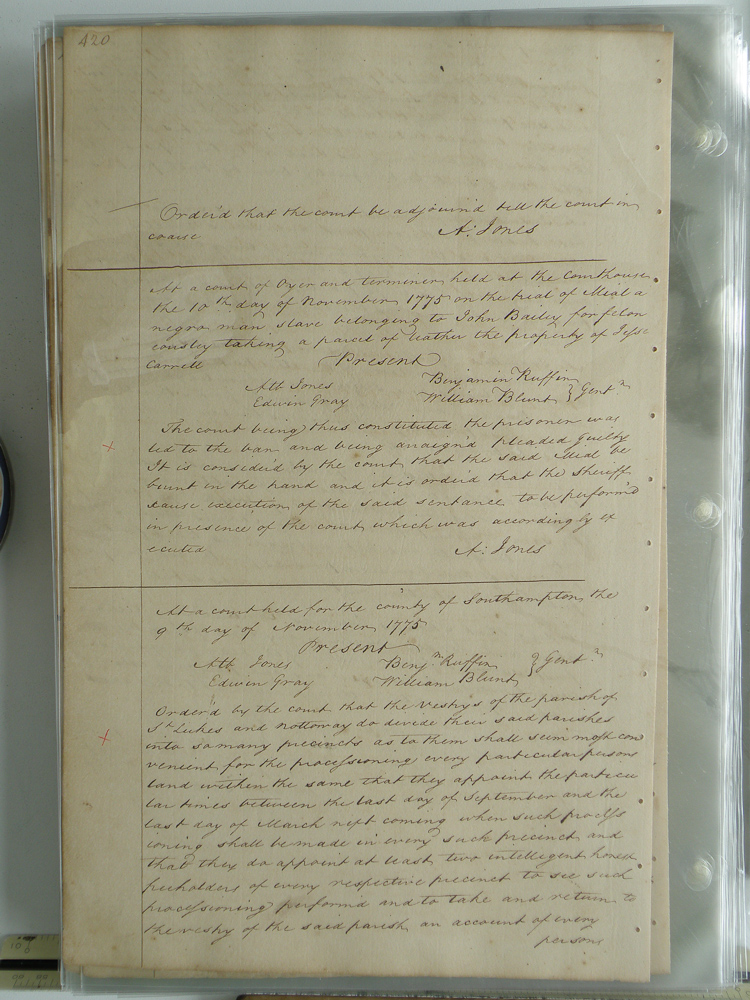 420
Order'd that the court be adjourn'd till the court in
course A: Jones
At a court of Oyer and terminer held at the Courthouse
the 10th day of November 1775 on the trial of Mial a
negro man slave belonging to John Bailey for felon
eously taking a parcel of leather the property of Jesse
Carrell Present
Alb Jones Benjamin Ruffin
Edwin Gray William Blunt } Gentn
The court being thus constituted the prisoner was
led to the bar and being arraign'd pleaded guilty
It is consider'd by the court that the said Mial be
burnt in the hand and it is order'd that the Sheriff
cause execution of the said sentance to be perform'd
in presence of the court which was accordingly ex
ecuted A: Jones
At a court held for the county of Southampton the
9th day of November 1775
Present
Alb Jones Benjn Ruffin
Edwin Gray William Blunt } Gentn
Order'd by the court that the Vestrys of the parish of
St Lukes and nottoway do divide their said parishes
into so many precincts as to them shall seem most con
venient for the processioning every particular persons
land within the same that they appoint the particu
lar times between the last day of September and the
last day of March next coming when such process
ioning shall be made in every such precinct and
that they do appoint at least two intelligent honest
freeholders of every respective precinct to see such
processioning performd and to take and return to
the vestry of the said parish an account of every
persons